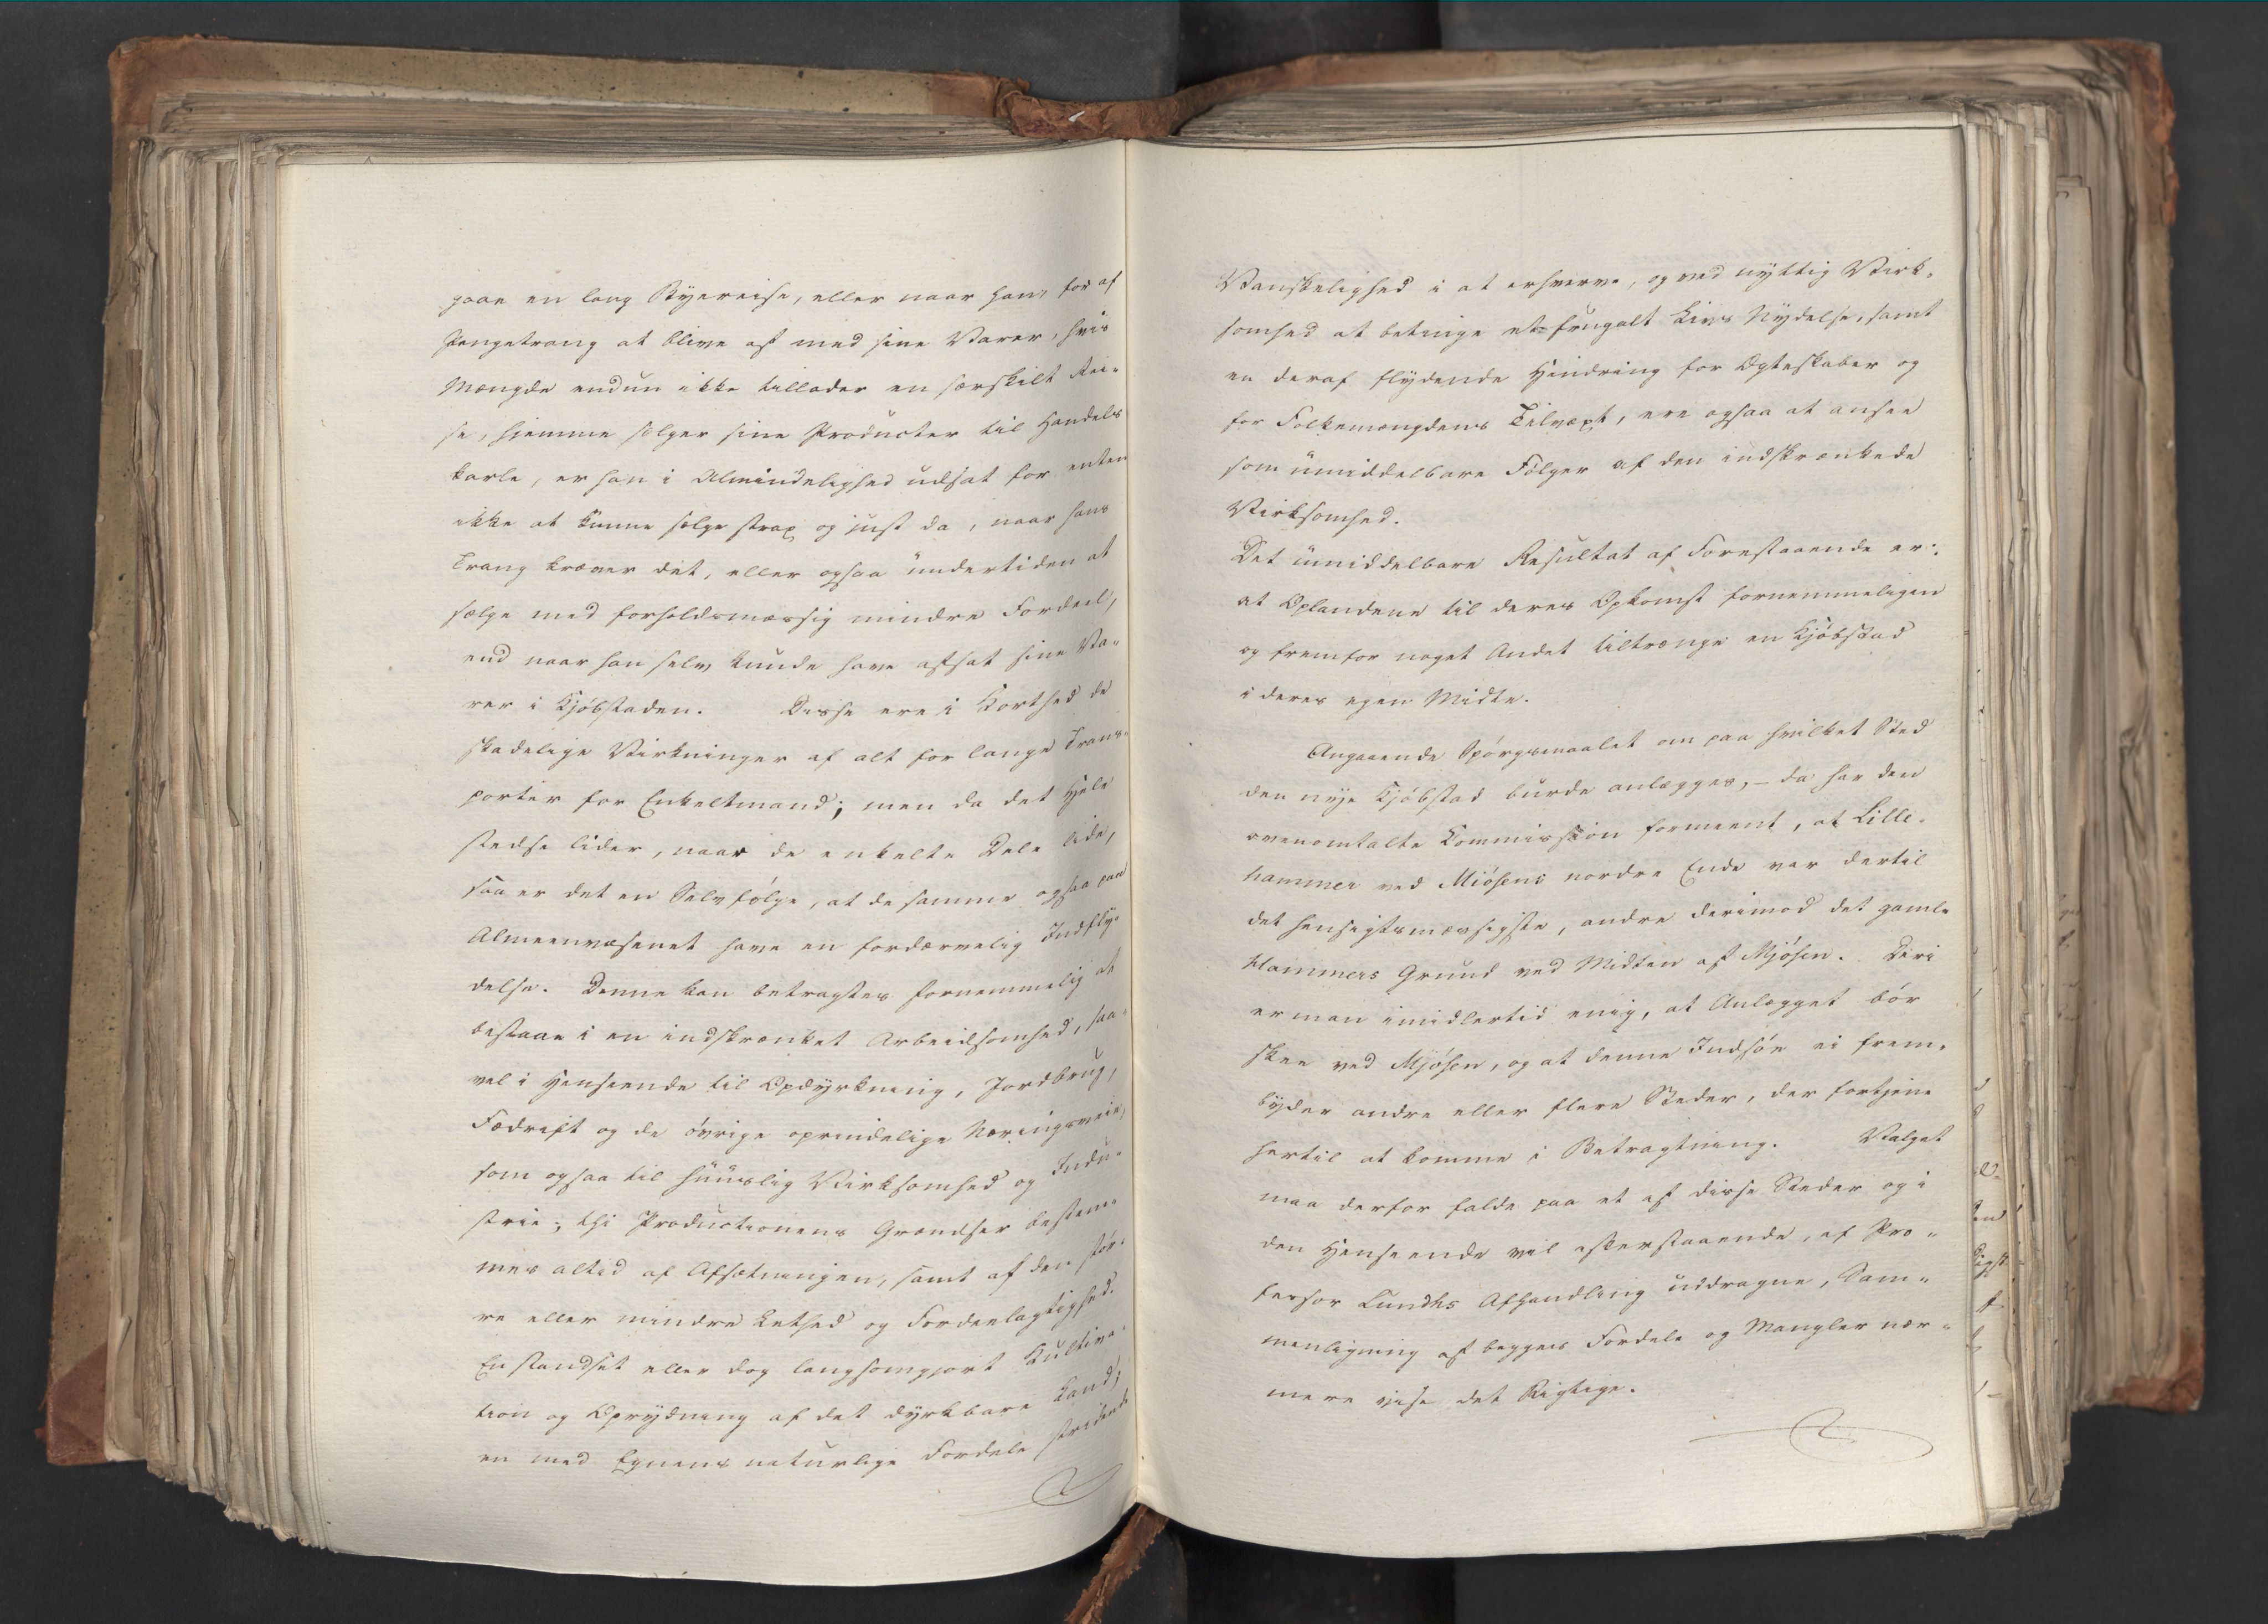 gaae en lang Byereise, eller naar han, for af
Pengetrang at blive af med sine Varer, hvis
Mængde endnu ikke tillader en særskilt Rei-
se, hjemme sælger sine Producter til Handels
karle, er han i Almindelighed udsat for enten
ikke at kunne sælge strax og just da, naar hans
Trang kræver det, eller ogsaa undertiden at
sælge med forholdsmæssig mindre Fordeel,
end naar han selv kunde have afsat sine Va-
rer i Kjöbstaden. Disse ere i Korthed de
skadelige Virkninger af alt for lange Trans-
porter for Enkeltmand; men da det Hele
stedse lider, naar de enkelte Dele lide,
saa er det en Selvfölge, at de samme ogsaa paa
Almeenvæsenet have en fordærvelig Indfly-
delse. Denne kan betragtes fornemmelig at
bestaae i en indskrænket Arbeidsomhed, saa-
vel i Henseende til Opdyrkning, Jordbrug,
Fædrift og de övrige oprindelige Næringsveie,
som ogsaa til huuslig Virksomhed og Indu-
strie; thi Productionens Grændser bestem-
mes altid af Afsætningen, samt af den stör-
re eller mindre Lethed og Fordeelagtighed.
En standset eller dog langsomgjort Kultiva-
tion og Oprydning af det dyrkbare Land;
en med Egnens naturlige Fordele stridende
Vanskelighed i at erhverve, og ved nyttig Virk-
somhed at betinge et frugalt Livs Nydelse, samt
en deraf flydende Hindring for Ægteskaber og
for Folkemængdens Tilvæxt, ere ogsaa at ansee
som umiddelbare Fölger af den indskrænkede
Virksomhed.
Det umiddelbare Resultat af Forestaaende er:
at Oplandene til deres Opkomst fornemmeligen
og fremfor noget Andet tiltrænge en Kjöbstad
i deres egen Midte.
Angaaende Spörgsmaalet om paa hvilket Sted
den nye Kjöbstad burde anlægges, – da har den
ovenomtalte Kommission formeent, at Lille-
hammer ved Miösens nordre Ende var dertil
det hensigtsmæssigste, andre derimod det gamle
Hammers Grund ved Midten af Mjösen. Deri
er man imidlertid enig, at Anlægget bör
skee ved Mjösen, og at denne Indsöe ei frem-
byder andre eller flere Steder, der fortjene
hertil at komme i Betragtning. Valget
maa derfor falde paa et af disse Steder og i
den Henseende vil efterstaaende, af Pro-
fessor Lundhs Afhandling uddragne, Sam-
menligning af begges Fordele og Mangler nær-
mere vise det Rigtige.